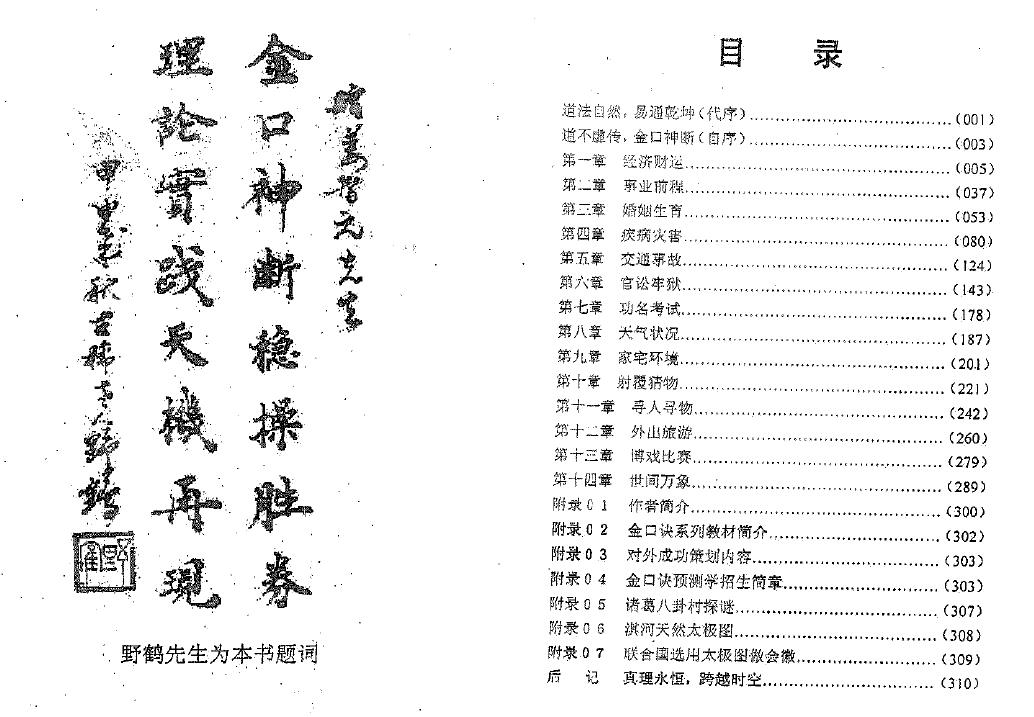 姜智元先生
金口神斷穩操胜券
理論實践天機再現
甲申秋古稀老人野鶴
野鹤先生为本书题词
目 录
道法自然,易通乾坤(代序)……(001)
道不虚传,金口神断(自序)……(003)
第一章 经济财运……(005)
第二章 事业前程……(037)
第三章 婚姻生育……(053)
第四章 疾病灾害……(080)
第五章 交通事故……(124)
第六章 官讼牢狱……(143)
第七章 功名考试……(178)
第八章 天气状况……(187)
第九章 家宅环境……(201)
第十章 射覆猜物……(221)
第十一章 寻人寻物……(242)
第十二章 外出旅游……(260)
第十三章 博戏比赛……(279)
第十四章 世间万象……(289)
附录01 作者简介……(300)
附录02 金口诀系列教材简介……(302)
附录03 对外成功策划内容……(303)
附录04 金口诀预测学招生简章……(303)
附录05 诸葛八卦村探谜……(307)
附录06 淇河天然太极图……(308)
附录07 联合国选用太极图做会徽……(309)
后 记 真理永恒,跨越时空……(310)